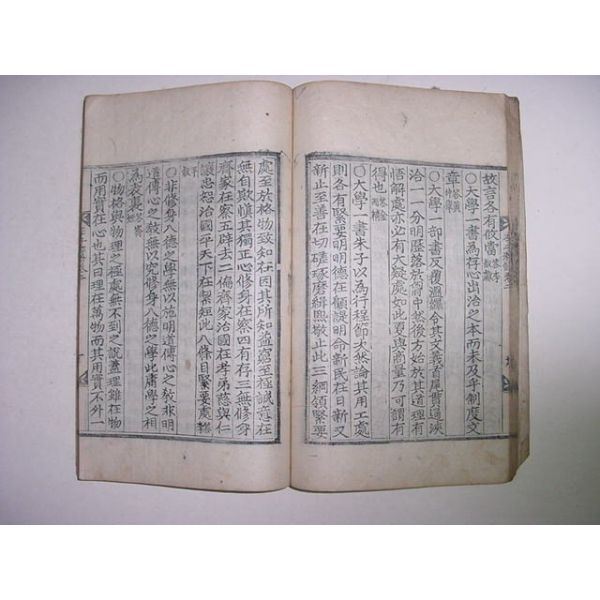 故言各有攸當
○大學一書爲存心出治之本而未及乎制度文
章
○大學一部書反復溫繹令其文義首尾貫通浹
洽一一分明歷落於胷中然後方始於其道理有
悟解處亦必有大疑處如此更與商量乃可謂有
得也
○大學一書朱子以爲行程節次然論其用工處
則各有緊要明明德在顧諟明命新民在日新又
新止至善在切磋琢磨緝熙敬止此三綱領緊要
處至於格物致知在因其所知益窮至極誠意在
無自欺愼其獨正心在察四有存三無修身
齊家在察五辟去二偏齊家治國在孝弟慈與仁
讓忠恕治國平天下在絜矩此八條目緊要處
○非修身入德之學無以施明道傳心之敎非明
道傳心之敎無以究修身入德之學此庸學之相
爲表裏
○物格與物理之極處無不到之說蓋理雖在物
而用實在心也其曰理在萬物而其用實不外一